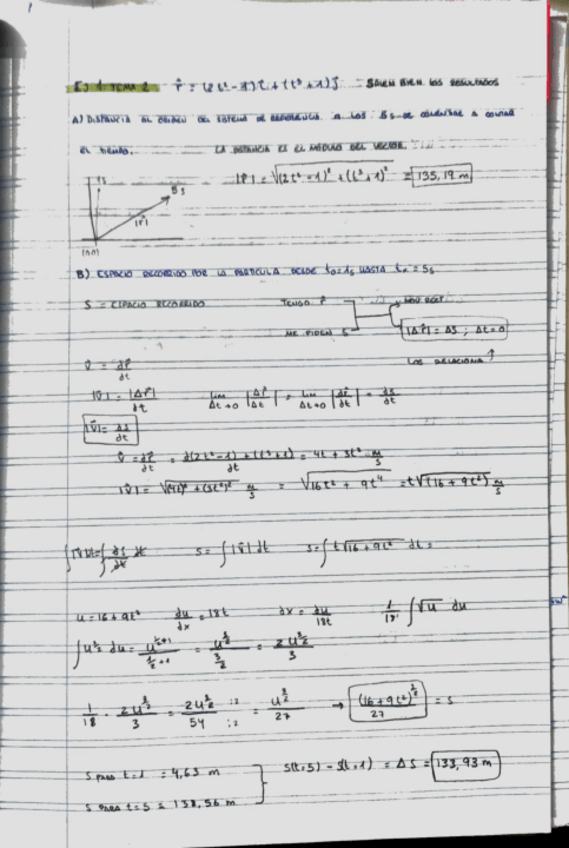 EJ 1 TEMA 2 r⃗ = (2t²-1)i + (t³+1)j SALEN BIEN LOS RESULTADOS
A) DISTANCIA AL ORIGEN DEL SISTEMA DE REFERENCIA A LOS 5s DE COMENZAR A CONTAR
EL TIEMPO. LA DISTANCIA ES EL MÓDULO DEL VECTOR.
|r⃗| = √((2t²-1)² + (t³+1)²) = 135,19 m
5s
|r⃗|
(0,0)
B) ESPACIO RECORRIDO POR LA PARTICULA DESDE t₀=1s HASTA tₓ=5s
S = ESPACIO RECORRIDO TENGO r⃗ MOV RECT
ME PIDEN S |Δr⃗| = ΔS ; Δt=0
LOS RELACIONA ↑
v⃗ = dr⃗/dt
|v⃗| = |Δr⃗|/dt lim Δt→0 |Δr⃗/Δt| = lim Δt→0 |dr⃗/dt| = ds/dt
|v⃗| = ds/dt
v⃗ = dr⃗/dt = d(2t²-1)+(t³+1)/dt = 4t + 3t² m/s
|v⃗| = √((4t)² + (3t²)²) m/s = √(16t² + 9t⁴) = t√(16 + 9t²) m/s
∫|v⃗|dt = ∫ds/dt dt S = ∫|v⃗| dt S = ∫t√(16 + 9t²) dt =
u = 16 + 9t² du/dx = 18t dx = du/18t 1/18 ∫√u du
∫u^½ du = u^(½+1)/(½+1) = u^(3/2)/(3/2) = 2u^(3/2)/3
1/18 · 2u^(3/2)/3 = 2u^(3/2)/54 :2 :2 = u^(3/2)/27 → (16 + 9t²)^(3/2)/27 = S
S PARA t=1 = 4,63 m S(t=5) - S(t=1) = ΔS = 133,93 m
S PARA t=5 = 138,56 m